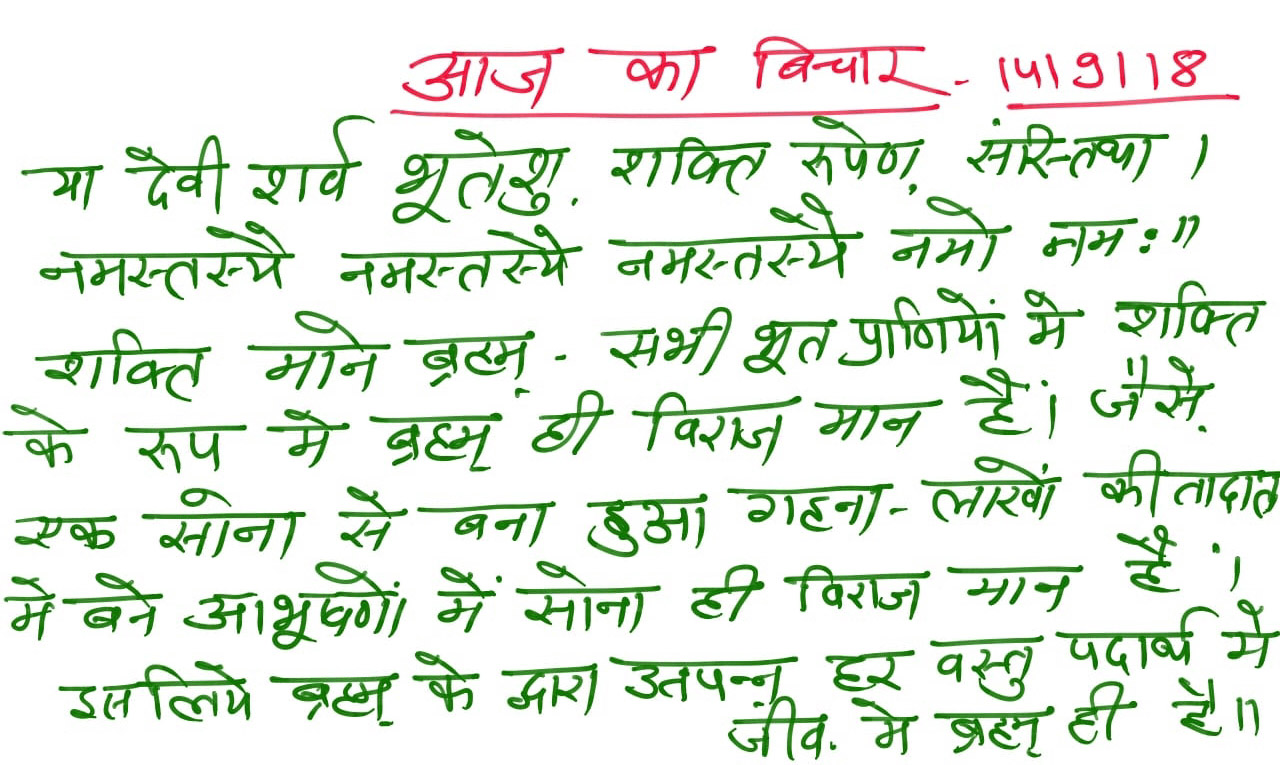 आज का बिचार - 15/9/18
या देवी शर्व भूतेशु. शक्ति रूपेण, संस्तिथा ।
नमस्तस्यै नमस्तस्यै नमस्तस्यै नमो नामः"
शक्ति माने ब्रह्म् - सभी भूत प्राणियों मे शक्ति
के रूप मे ब्रह्म् ही विराज मान है। जैसे.
एक सोना से बना हुआ गहना - लाखों की तादात
मे बने आभूषणों में सोना ही विराज मान है ।
इसलिये ब्रह्म् के द्वारा उतपन्न् हर वस्तु पदार्थ मे
जीव. मे ब्रह्म् ही है॥